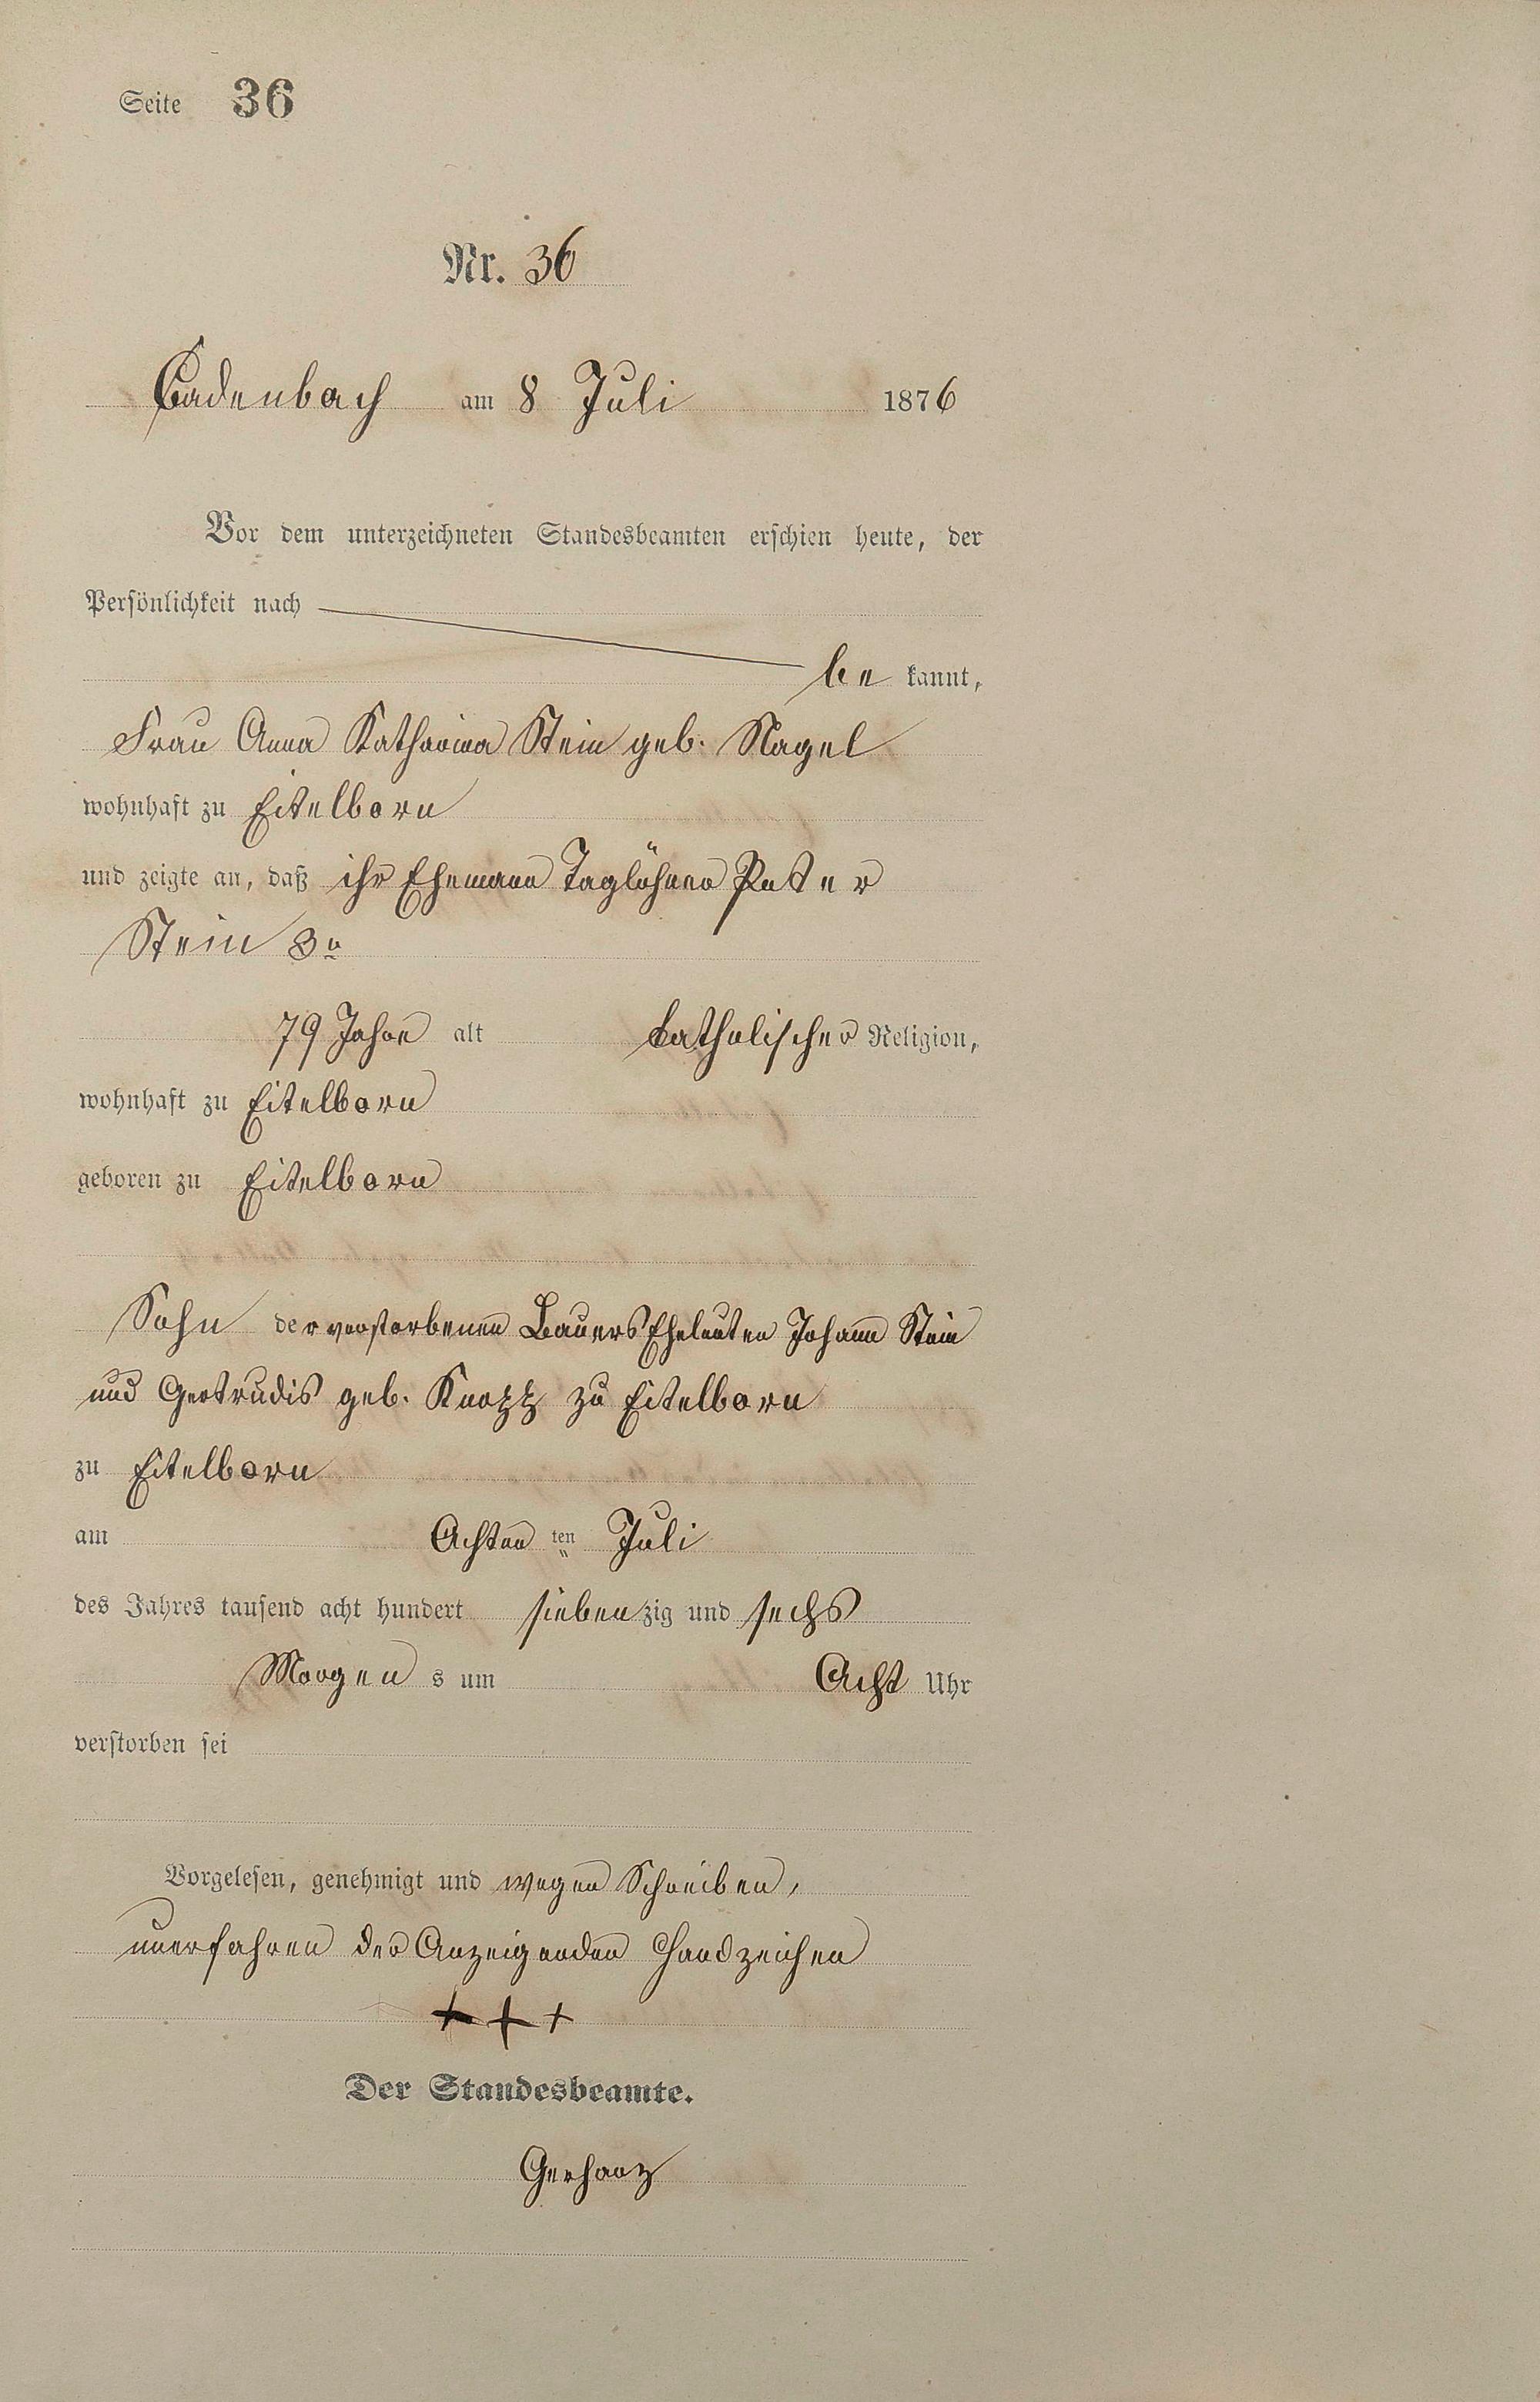 Seite 36
Nr. 36
Cadenbach am 8 Juli 1876
Vor dem unterzeichneten Standesbeamten erschien heute, der
Persönlichkeit nach
be kannt,
Frau Anna Katharina Stein geb. Nagel
wohnhaft zu Eitelborn
und zeigte an, daß ihr Ehemann Taglöhner Peter
Stein 3r
79 Jahre alt katholischer Religion,
wohnhaft zu Eitelborn
geboren zu Eitelborn
Sohn der verstorbenen Bauers Eheleuten Johann Stein
und Gertrudis geb. Knopp zu Eitelborn
zu Eitelborn
am Achten ten Juli
des Jahres tausend acht hundert sieben zig und sechs
Morgen s um Acht Uhr
verstorben sei
Vorgelesen, genehmigt und wegen Schreiben,
unerfahren der Anzeigenden Handzeichen
+ + +
Der Standesbeamte.
Gerharz